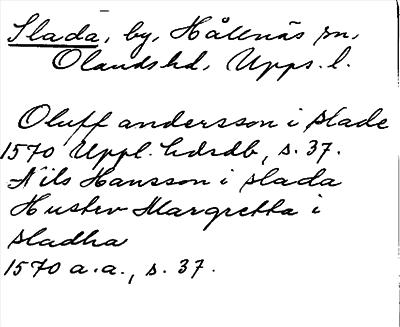 Slada, by, Hållnäs sn,
Olands hd, Upps. l.
Oluff andersson i slade
1570 Uppl. hdrdb, s. 37.
Nils Hansson i slada
Hustrv Margretta i
sladha
1570 a.a., s. 37.